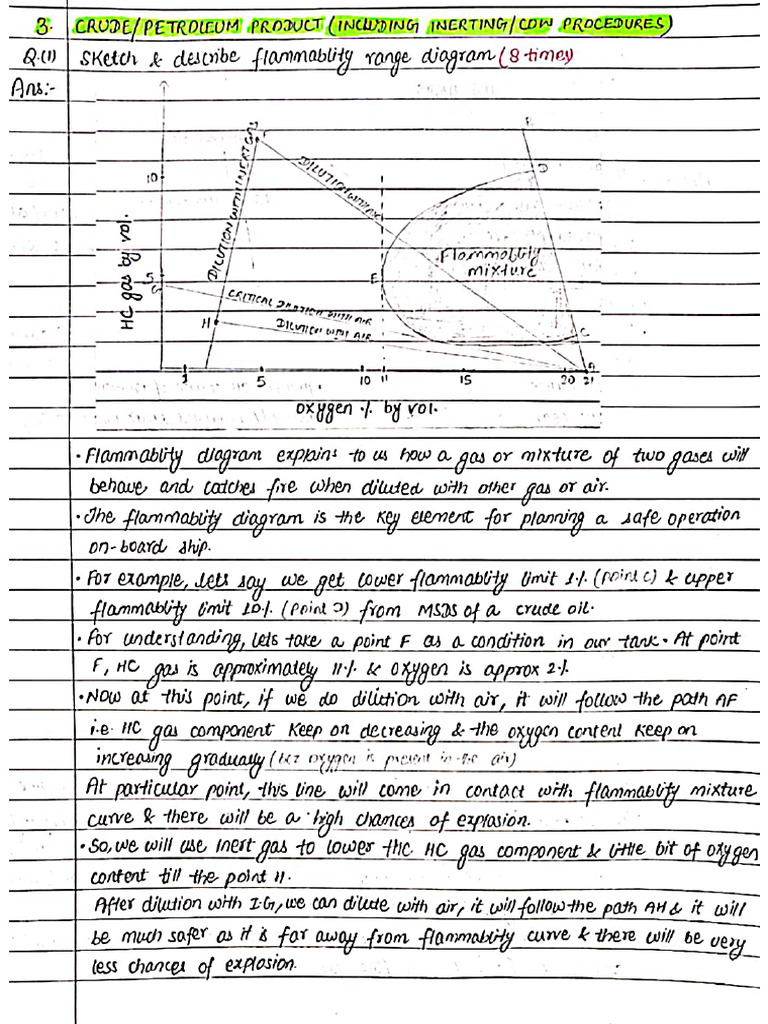 3. CRUDE/PETROLEUM PRODUCT (INCLUDING INERTING/COW PROCEDURES)
Q.(1) Sketch & describe flammablity range diagram (8 times)
Ans:-
B
F
D
10
DILUTION WITH INERT GAS
DILUTION WITH AIR
HC gas by vol.
Flammablity
mixture
5
E
G
CRITICAL DILUTION WITH AIR
H
DILUTION WITH AIR
C
A
5 10 11 15 20 21
oxygen % by vol.
• Flammablity diagram explains to us how a gas or mixture of two gases will
behave and catches fire when diluted with other gas or air.
• The flammablity diagram is the key element for planning a safe operation
on-board ship.
• For example, lets say we get lower flammablity limit 1% (point C) & upper
flammablity limit 10% (Point D) from MSDS of a crude oil.
• For understanding, lets take a point F as a condition in our tank. At point
F, HC gas is approximately 11% & oxygen is approx 2%
• Now at this point, if we do dilution with air, it will follow the path AF
i.e. HC gas component keep on decreasing & the oxygen content keep on
increasing gradually (bcz oxygen is present in the air)
At particular point, this line will come in contact with flammablity mixture
curve & there will be a high chances of explosion.
• So, we will use inert gas to lower the HC gas component & little bit of oxygen
content till the point H.
After dilution with I.G, we can dilute with air, it will follow the path AH & it will
be much safer as H is far away from flammablity curve & there will be very
less chances of explosion.